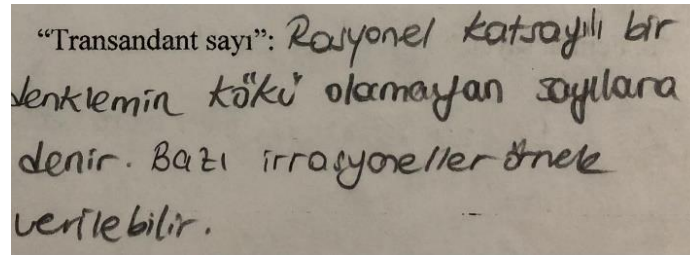 “Transandant sayı”: Rasyonel katsayılı bir
denklemin kökü olamayan sayılara
denir. Bazı irrasyoneller örnek
verilebilir.